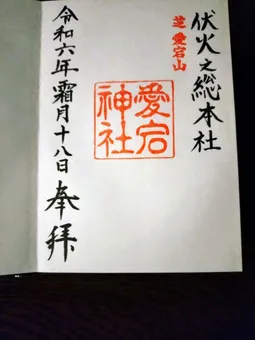 伏火之総本社
芝 愛宕山
愛宕
神社
令和六年霜月十八日
奉拝